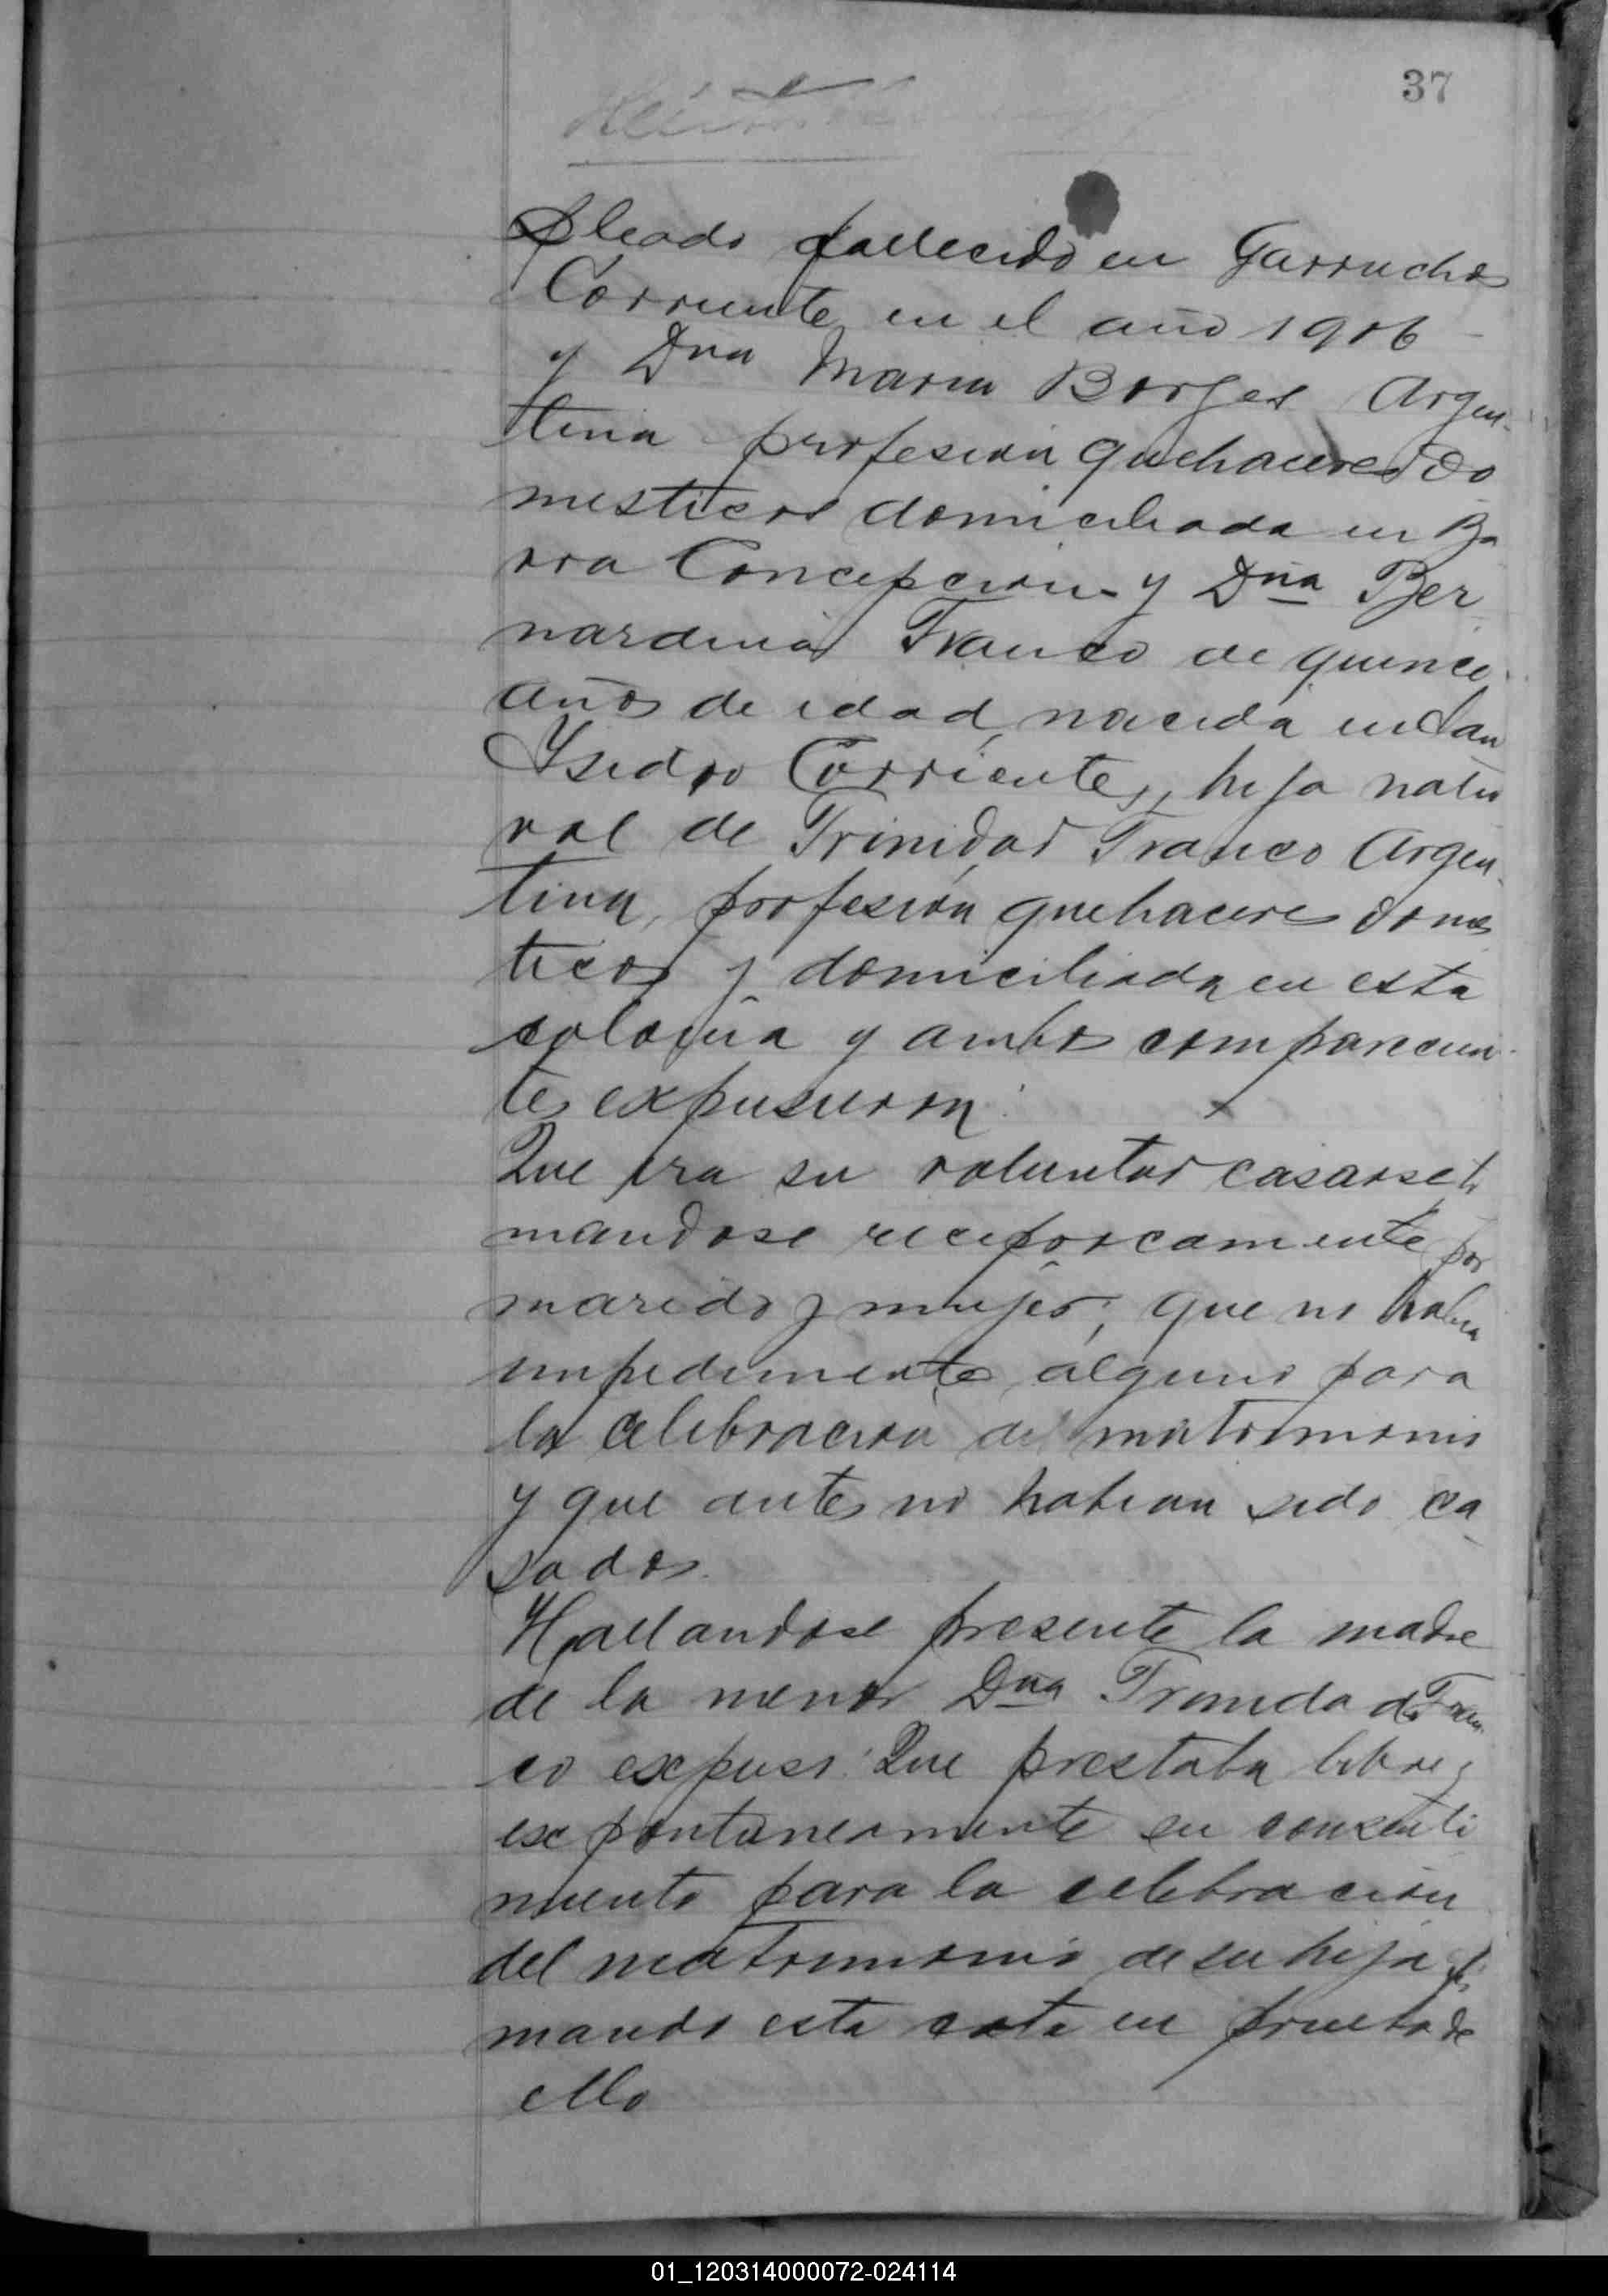 37
pleado fallecido en Garruchos
Corriente en el año 1906
y Dna Maria Borges Argen-
tina profesion quehaceres do
mesticos domiciliada en Ba
rra Concepcion y Dña Ber
nardina Franco de quince
años de edad, nacida en San
Ysidro Corrientes, hija natu
ral de Trinidad Franco Argen
tina, profesión quehaceres domes
ticos y domiciliada en esta
colonia y ambos comparecien-
tes expusieron:
Que era su voluntad casarse to
mandose reciprocamente por
marido y mujer, que no habia
impedimento alguno para
la celebracion del matrimonio
y que antes no habian sido ca
sados.
Hallandose presente la madre
de la menor Dna Trinida de Fran
co expuso: Que prestaba libre y
expontaneamente su consenti
miento para la celebracion
del matrimonio de su hija fir
mando esta acta en prueba de
ello
01_120314000072-024114